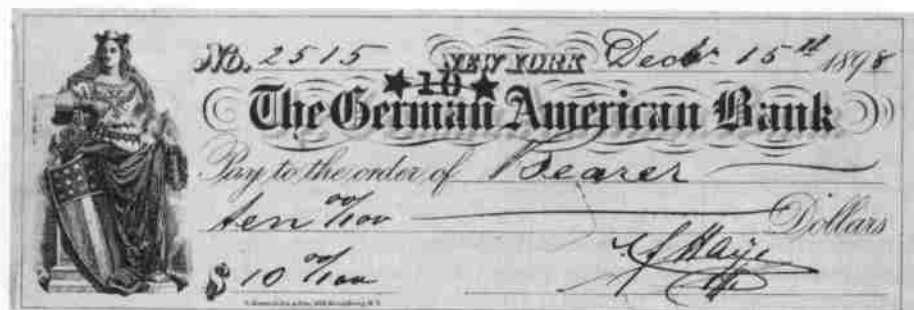 No. 2515 NEW YORK Decbr. 15th 1898
★10★
The German American Bank
Pay to the order of Bearer
ten 00/100 Dollars
$ 10 00/100